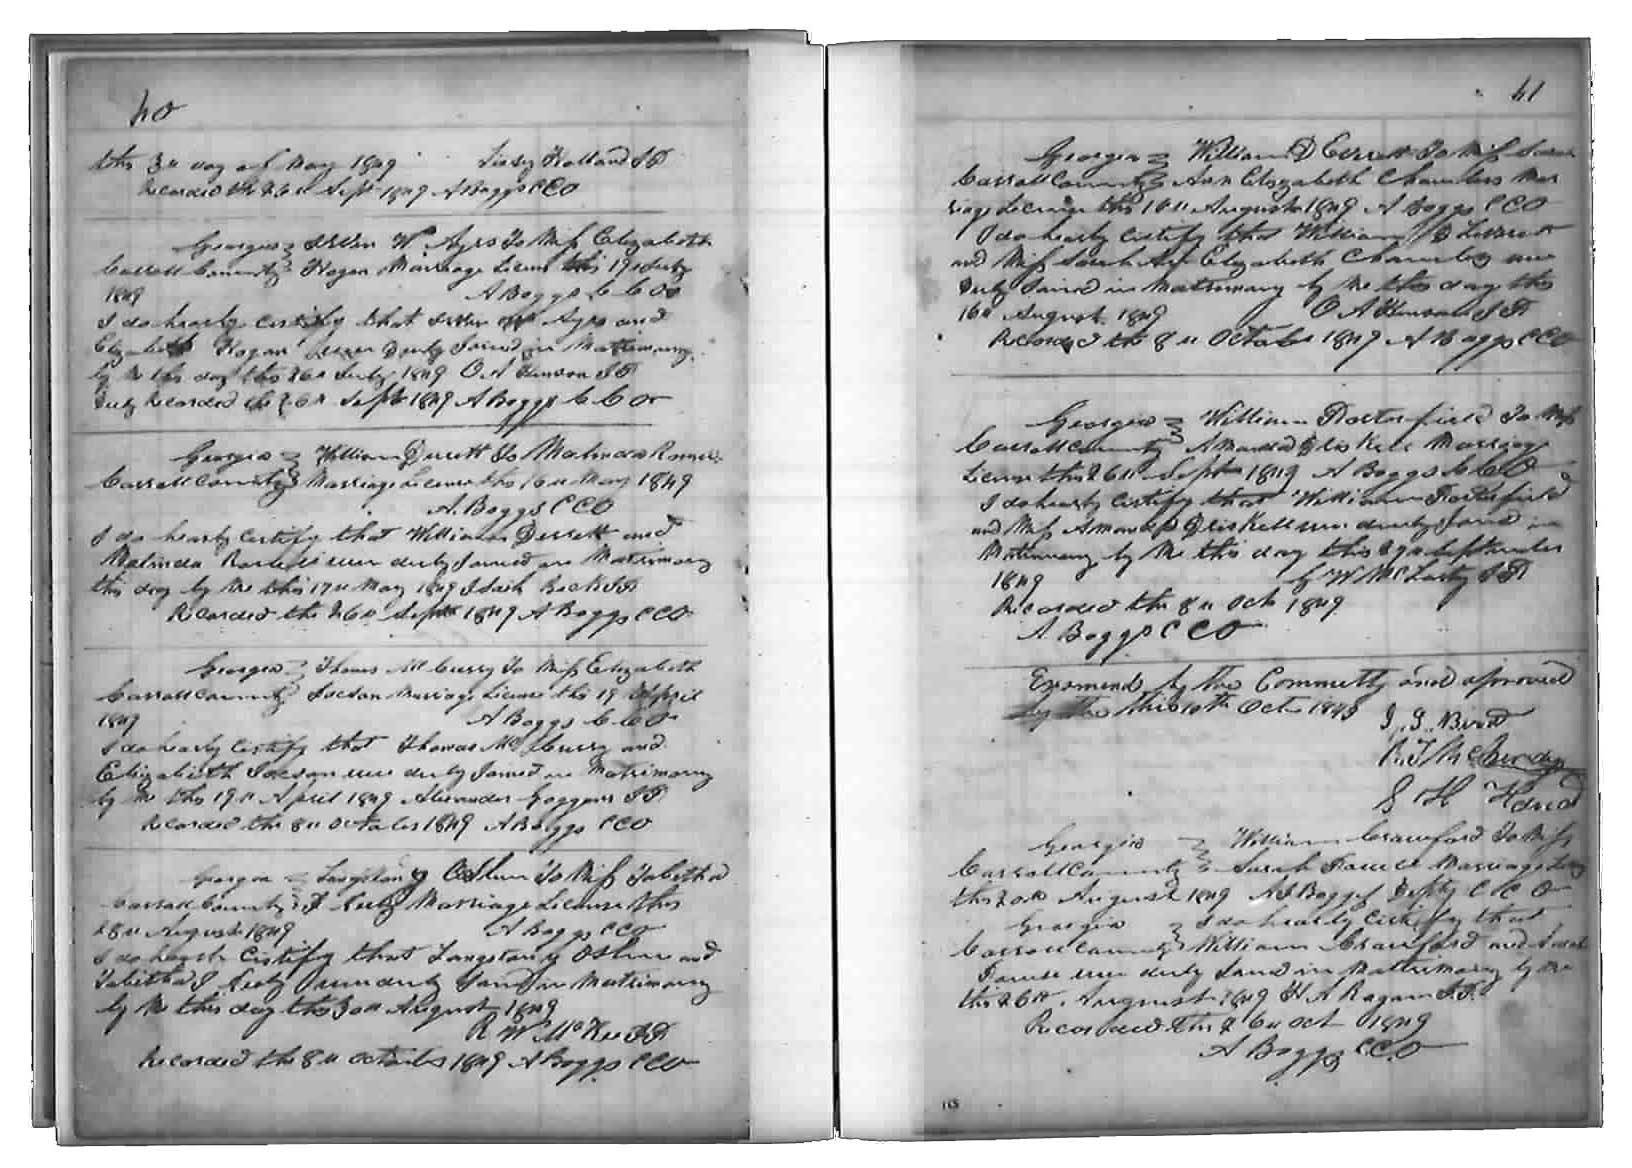 40
this 3" day of May 1849 Holland J P
Recorded the 26" Sept 1849 A Boggs C C O
Georgia W Ayrs To Miss Elizabeth
Carroll County Hogan Marriage License this 19 July
1849 A Boggs C C O
I do hearby certify that W Ayrs and
Elizabeth Hogan were duly Joined in Matrimony
by Me this day this 26" July 1849 O A Hinson J P
Duly Recorded the 26" Sept 1849 A Boggs C C O
Georgia William Derrett To Malinda
Carroll County Marriage License this 16" May 1849
A. Boggs C C O
I do hearby certify that William Derrett and
Malinda were duly Joined in Matrimony
this day by Me this 17" May 1849 Beck J P
Recorded the 26" Sept 1849 A Boggs C C O
Georgia Thomas Mc Curry To Miss Elizabeth
Carroll County Marriage License this 19 April
1849 A Boggs C C O
I do hearby certify that Thomas Mc Curry and
Elizabeth were duly Joined in Matrimony
by Me this 19" April 1849 Alexander Goggans J P
Recorded the 8" October 1849 A Boggs C C O
Georgia Langston To Miss Tabitha
Carroll County Marriage License this
28" August 1849 A Boggs C C O
I do hearby Certify that Langston and
Tabitha J were duly Joined in Matrimony
by Me this day this 30" August 1849
R W McKee J P
Recorded the 8" October 1849 A Boggs C C O
41
Georgia William D To Miss Sarah
Carroll County Ann Elizabeth Chambers Mar
riage License this 16" August 1849 A Boggs C C O
I do hearby Certify that William D
and Miss Sarah Ann Elizabeth Chambers were
Duly Joined in Matrimony by Me this day this
16" August 1849 O A Hinson J P
Recorded the 8" October 1849 A Boggs C C O
Georgia William Porterfield To Miss
Carroll County Amanda Driskell Marriage
License this 26" Sept 1849 A Boggs C C O
I do hearby Certify that William Porterfield
and Miss Amanda Driskell were duely Joined in
Matrimony by Me this day this 29" September
1849 G W McLarty J P
Recorded the 8" Oct 1849
A Boggs C C O
Exsomend by the Committy and aproved
by the this 10th Oct 1849 J. Bird
R. J
Georgia William Crawford To Miss
Carroll County Sarah Marriage
this August 1849 A J Boggs Depty C C O
Georgia I do hearby Certify that
Carroll County William Crawford and Sarah
were duly Joined in Matrimony by Me
this 26" August 1849 H A Ragan J. P.
Recorded this 26" Oct 1849
A Boggs C C O